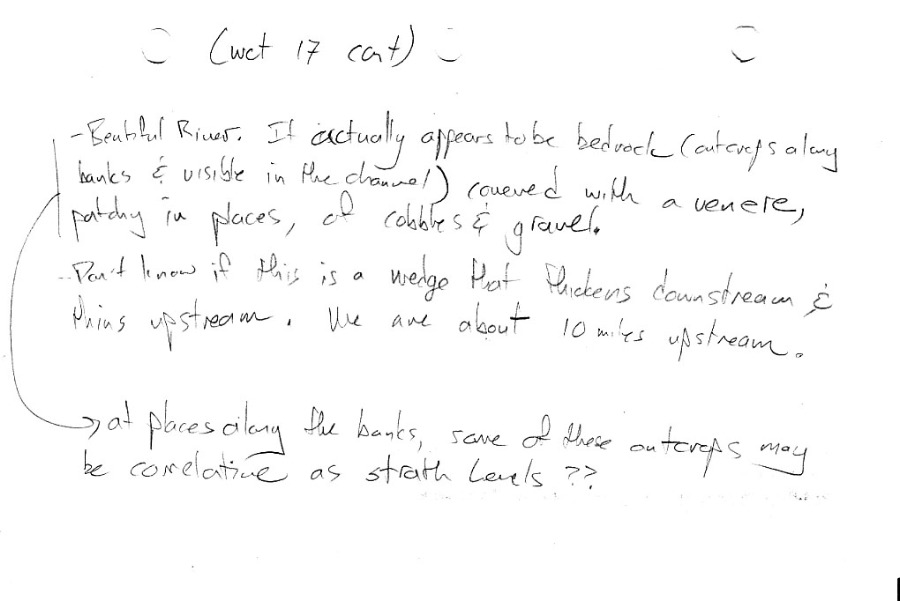 (wct 17 cont)
- Beautiful River. It actually appears to be bedrock (outcrops along
banks & visible in the channel) covered with a veneer,
patchy in places, of cobbles & gravel.
- Don't know if this is a wedge that thickens downstream &
thins upstream. We are about 10 miles upstream.
→ at places along the banks, some of these outcrops may
be correlative as strath levels ??